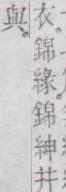 衣。錦緣。錦紳并
與。